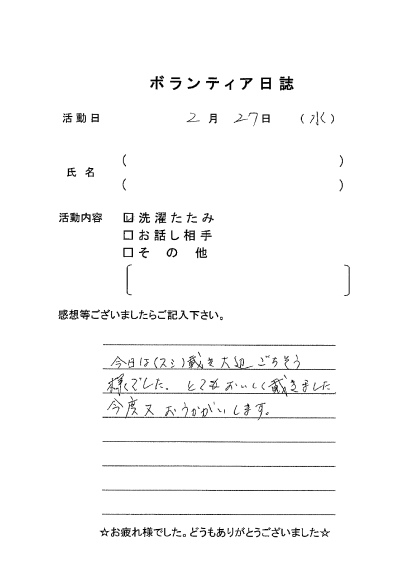 ボランティア日誌
活動日 2月 27日 (水)
氏名
活動内容 ☑洗濯たたみ
□お話し相手
□その他
感想等ございましたらご記入下さい。
今日は(スシ)戴き大辺ごちそう
様でした。とてもおいしく戴きました
今度又おうかがいします。
☆お疲れ様でした。どうもありがとうございました☆